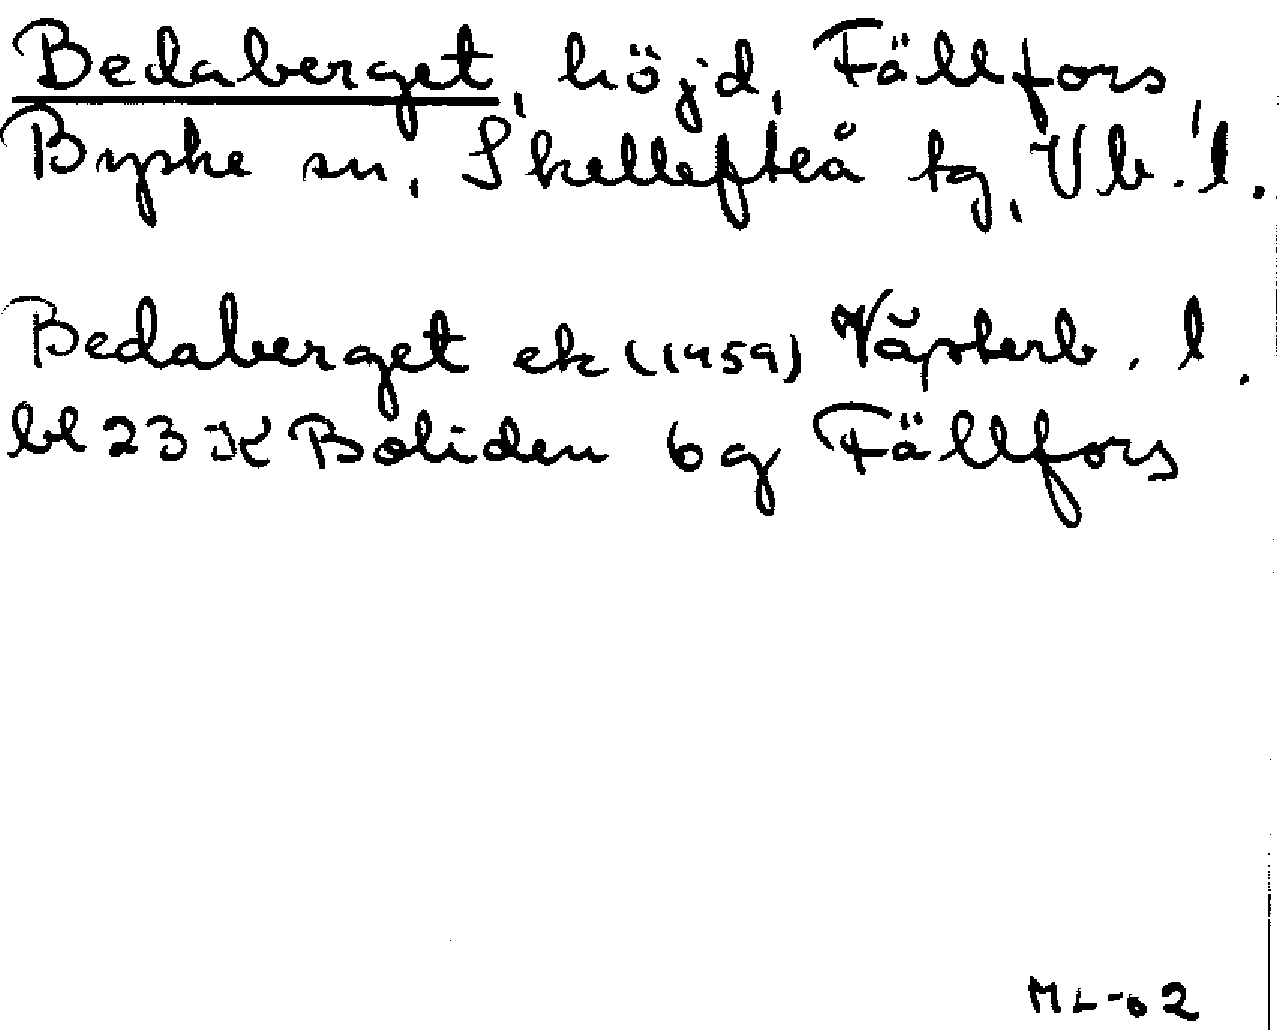 Bedaberget, höjd, Fällfors,
Byske sn, Skellefteå tg, Vb. l.
Bedaberget ek (1959) Västerb. l.
bl 23 K Boliden 6g Fällfors
ML-02